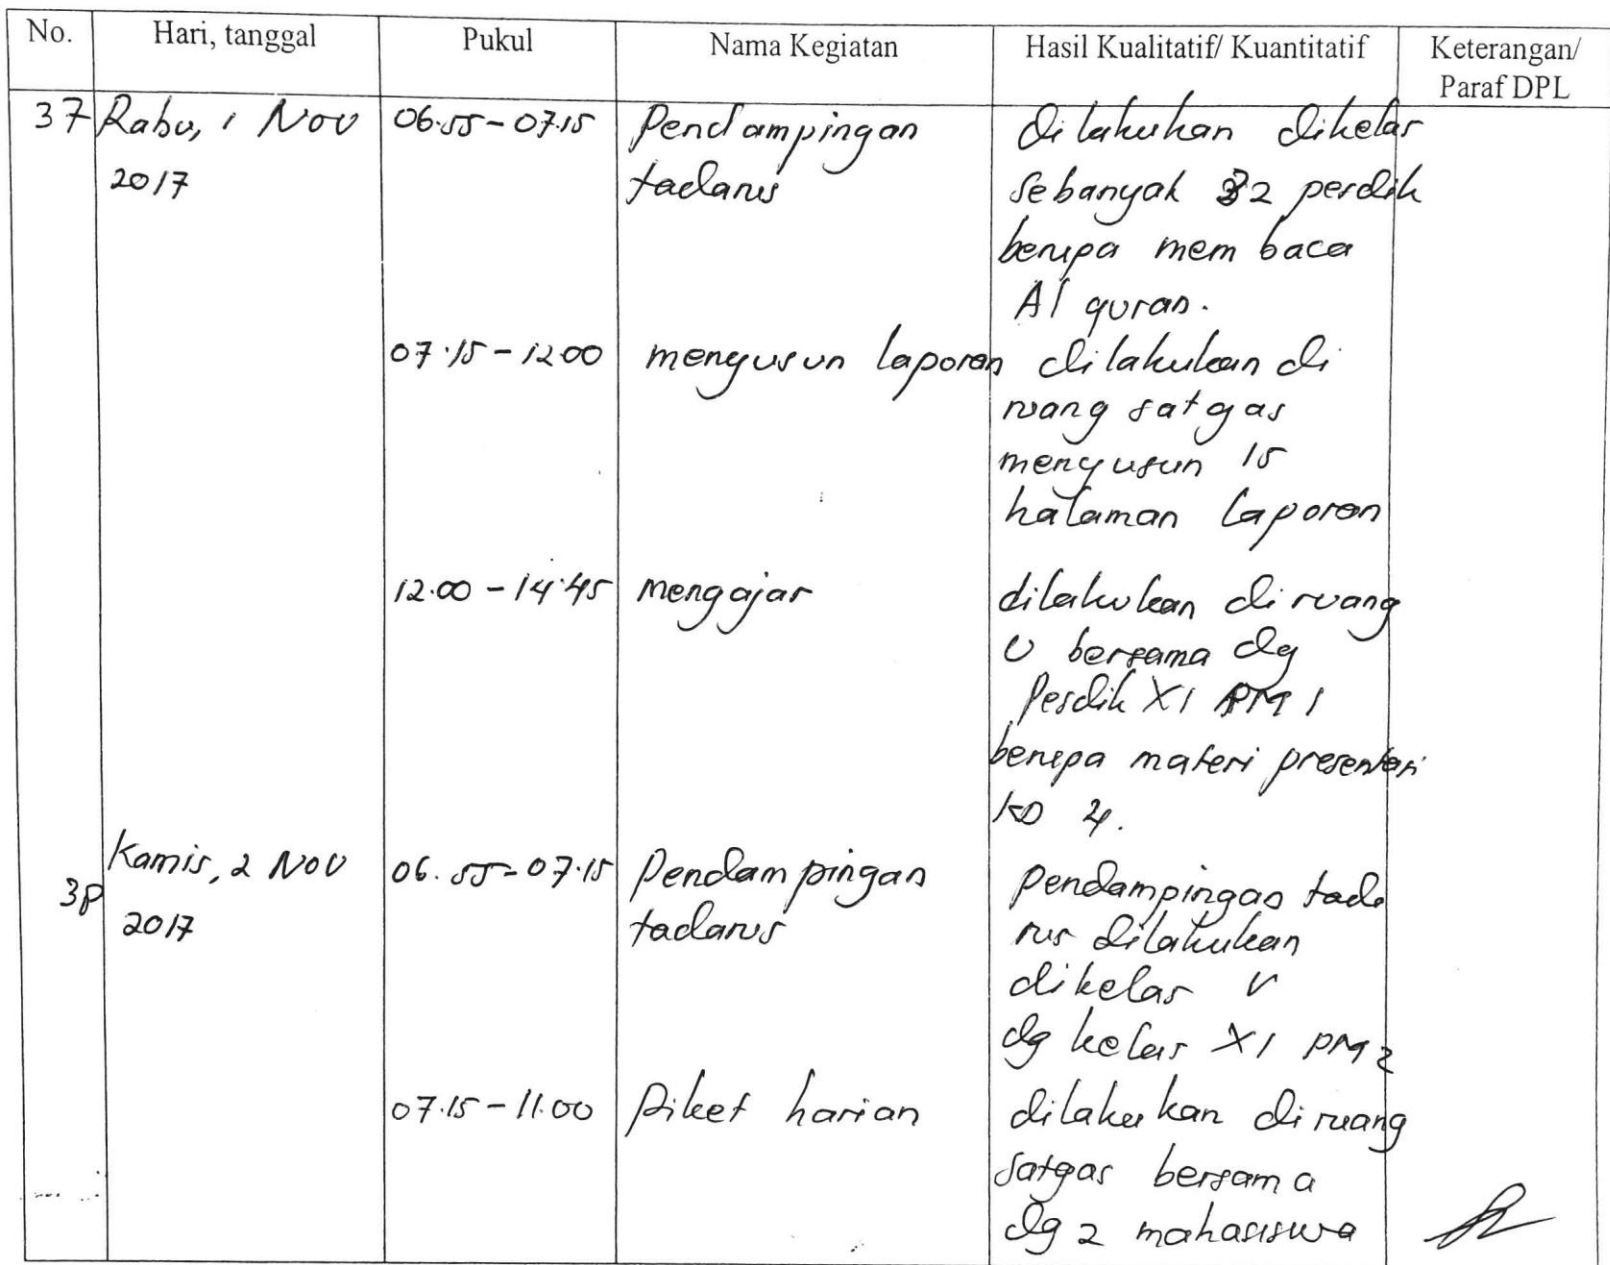 No. Hari, tanggal Pukul Nama Kegiatan Hasil Kualitatif/ Kuantitatif Keterangan/
Paraf DPL
37 Rabu, 1 Nov 06.55 - 07.15 Pendampingan dilakukan dikelas
2017 tadarus sebanyak 32 perdik
berupa mem baca
Al quran.
07.15 - 12.00 menyusun laporan dilakukan di
ruang satgas
menyusun 15
halaman laporan
12.00 - 14.45 mengajar dilakukan di ruang
U bersama dg
Pesdik XI PM 1
berupa materi presentasi
KD 4.
38 Kamis, 2 Nov 06.55 - 07.15 Pendampingan pendampingan tada
2017 tadarus rus dilakukan
dikelas
dg kelas XI PM 2
07.15 - 11.00 Piket harian dilakukan di ruang
satgas bersama
dg 2 mahasiswa